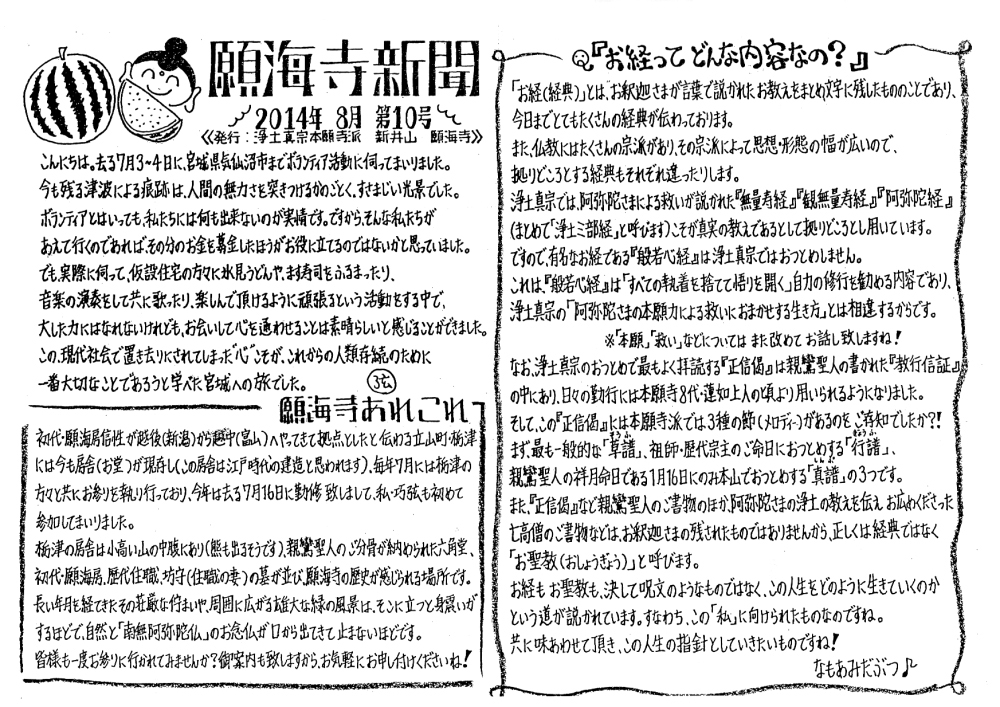 願海寺新聞
2014年 8月 第10号
《発行：浄土真宗本願寺派 新井山 願海寺》
こんにちは。去る7月3~4日に、宮城県気仙沼市までボランティア活動に伺ってまいりました。
今も残る津波による痕跡は、人間の無力さを突きつけるかのごとく、すさまじい光景でした。
ボランティアとはいっても、私たちには何も出来ないのが実情です。ですから、そんな私たちが
あえて行くのであれば、その分のお金を募金したほうがお役に立てるのではないかと思っていました。
でも、実際に伺って、仮設住宅の方々に氷見うどんや、ます寿司をふるまったり、
音楽の演奏をして共に歌ったり、楽しんで頂けるように頑張るという活動をする中で、
大した力にはなれないけれども、お会いして心を通わせることは素晴らしいと感じることができました。
この、現代社会で置き去りにされてしまった“心”こそが、これからの人類存続のために
一番大切なことであろうと学べた宮城への旅でした。
願海寺あれこれ
初代・願海房信性が越後(新潟)から越中(富山)へやってきて拠点としたと伝わる立山町・栃津
には今も房舎(お堂)が現存し(この房舎は江戸時代の建造と思われます)、毎年7月には栃津の
方々と共にお参りを執り行っており、今年は去る7月16日に勤修致しまして、私・巧弦も初めて
参加してまいりました。
栃津の房舎は小高い山の中腹にあり(熊も出るそうです)、親鸞聖人のご分骨が納められた六角堂、
初代・願海房、歴代住職、坊守(住職の妻)の墓が並び、願海寺の歴史が感じられる場所です。
長い年月を経てきたその荘厳な佇まいや、周囲に広がる雄大な緑の風景は、そこに立つと身震いが
するほどで、自然と「南無阿弥陀仏」のお念仏が口から出てきて止まないほどです。
皆様も一度お参りに行かれてみませんか?御案内も致しますから、お気軽にお申し付けくださいね!
Q『お経って どんな内容なの?』
「お経(経典)」とは、お釈迦さまが言葉で説かれたお教えをまとめ文字に残したもののことであり、
今日までとてもたくさんの経典が伝わっております。
また、仏教にはたくさんの宗派があり、その宗派によって思想・形態の幅が広いので、
拠りどころとする経典もそれぞれ違ったりします。
浄土真宗では、阿弥陀さまによる救いが説かれた『無量寿経』『観無量寿経』『阿弥陀経』
(まとめて「浄土三部経」と呼びます)こそが真実の教えであるとして拠りどころとし用いています。
ですので、有名なお経である『般若心経』は浄土真宗ではおつとめしません。
これは、『般若心経』は「すべての執着を捨てて悟りを開く」自力の修行を勧める内容であり、
浄土真宗の「阿弥陀さまの本願力による救いにおまかせする生き方」とは相違するからです。
※「本願」「救い」などについては また改めて お話し致しますね!
なお、浄土真宗のおつとめで最もよく拝読する『正信偈』は親鸞聖人の書かれた『教行信証』
の中にあり、日々の勤行には本願寺8代・蓮如上人の頃より用いられるようになりました。
そして、この『正信偈』には本願寺派では3種の節(メロディー)があるのをご存知でしたか?!
まず、最も一般的な「草譜」、祖師・歴代宗主のご命日におつとめする「行譜」、
親鸞聖人の祥月命日である1月16日にのみ本山でおつとめする「真譜」の3つです。
また、『正信偈』など親鸞聖人のご書物のほか、阿弥陀さまの浄土の教えを伝え お広めくださった
七高僧のご書物などは、お釈迦さまの残されたものではありませんから、正しくは経典ではなく
「お聖教(おしょうぎょう)」と呼びます。
お経も お聖教も、決して呪文のようなものではなく、この人生をどのように生きていくのか
という道が説かれています。すなわち、この「私」に向けられたものなのですね。
共に味あわせて頂き、この人生の指針としていきたいものですね!
なもあみだぶつ♪